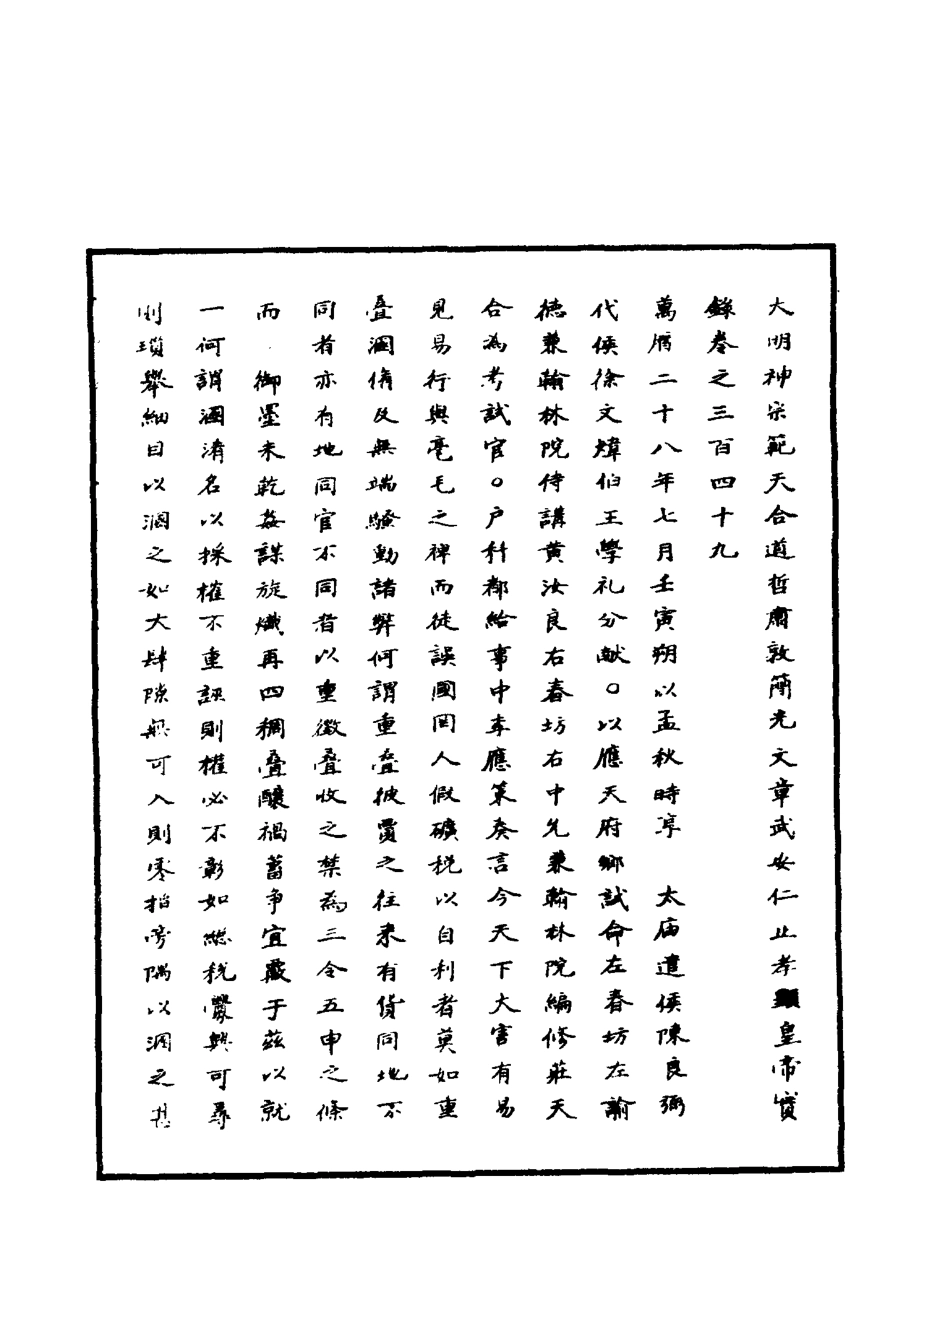 大明神宗範天合道哲肅敦簡光文章武安仁止孝顯皇帝實
錄卷之三百四十九
萬曆二十八年七月壬寅朔以孟秋時享　太庙遣侯陳良弼
代侯徐文煒伯王學礼分献○以應天府鄉試命左春坊左諭
德兼翰林院侍講黃汝良右春坊右中允兼翰林院編修莊天
合為考試官○户科都給事中李應策奏言今天下大害有易
見易行與毫毛之裨而徒誤國罔人假礦税以自利者莫如重
叠溷淆及無端騷動諸弊何謂重叠彼賈之往来有貨同地不
同者亦有地同官不同者以重徵叠收之禁為三令五申之條
而　御墨未乾姦謀旋熾再四稠叠釀禍蓄争宜嚴于兹以就
一何謂溷淆名以採榷不重誣則權必不彰如總税釁興可尋
则瑣舉細目以溷之如大肆隙無可入則零掐旁隅以溷之其